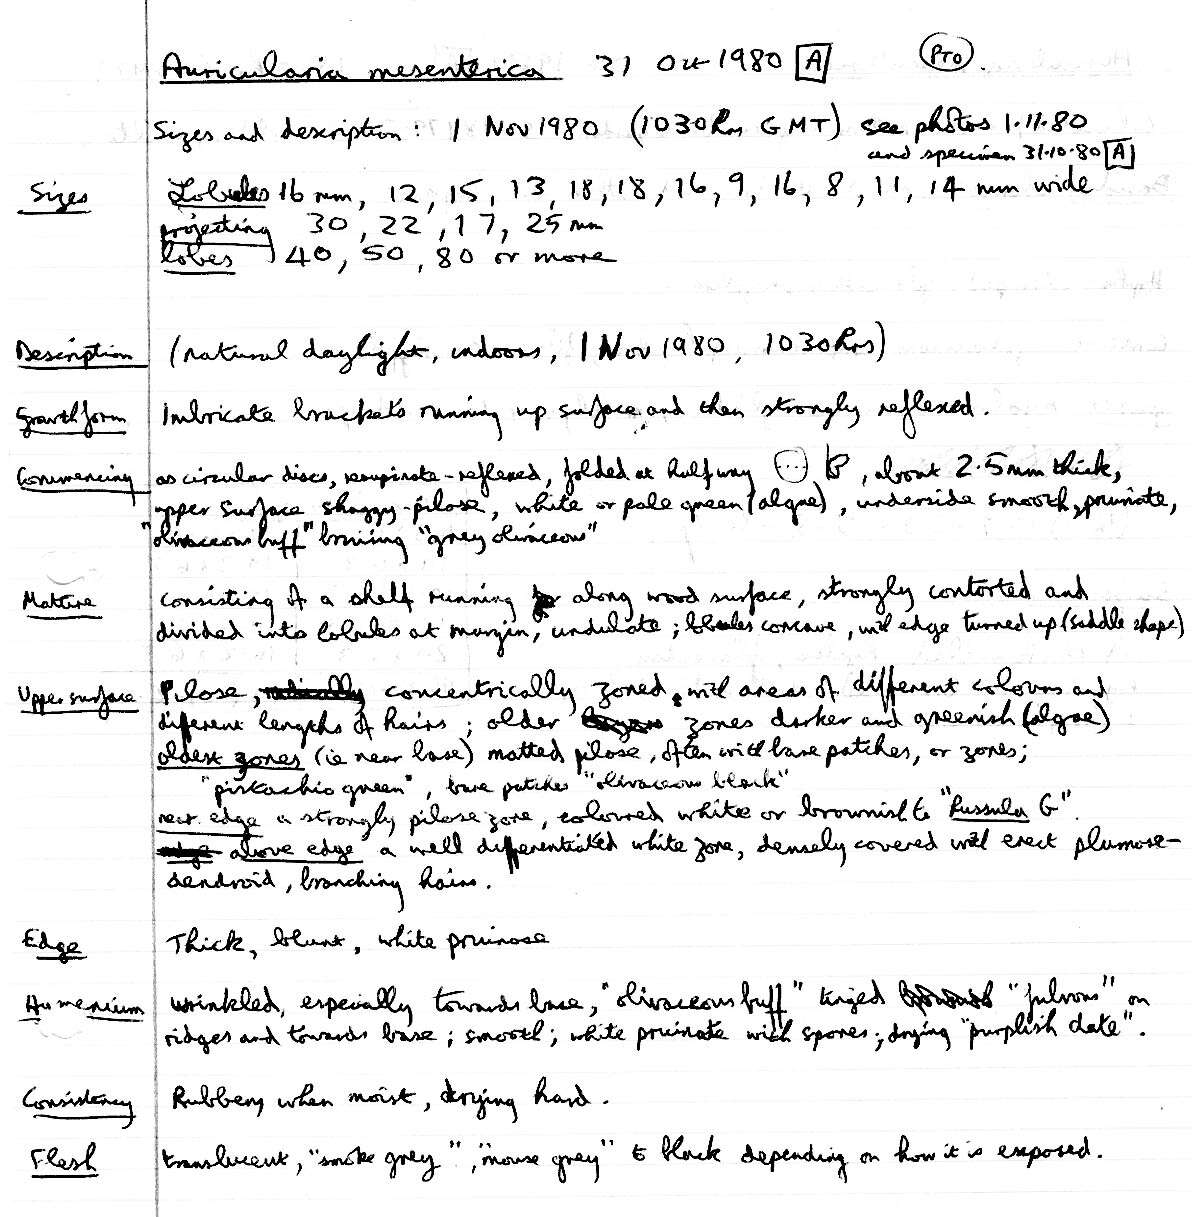 Auricularia mesenterica 31 Oct 1980 [A] PTO.
Sizes and description: 1 Nov 1980 (1030 hrs GMT) see photos 1.11.80
and specimen 31.10.80 [A]
Sizes Lobules 16 mm, 12, 15, 13, 18, 18, 16, 9, 16, 8, 11, 14 mm wide
projecting 30, 22, 17, 25 mm
lobes 40, 50, 80 or more
Description (natural daylight, indoors, 1 Nov 1980, 1030 hrs)
Growth form Imbricate brackets running up surface and then strongly reflexed.
Commencing as circular discs, resupinate-reflexed, folded at halfway , about 2.5 mm thick,
upper surface shaggy-pilose, white or pale green (algae), underside smooth, pruinate,
"olivaceous buff" "grey olivaceous"
Mature consisting of a shelf running along wood surface, strongly contorted and
divided into lobules at margin, undulate; lobules concave, with edge turned up (saddle shape)
Upper surface Pilose, concentrically zoned, with areas of different colours and
different lengths of hairs; older zones darker and greenish (algae)
oldest zones (ie near base) matted pilose, often with bare patches, or zones;
"pistachio green", bare patches "olivaceous black"
near edge a strongly pilose zone, coloured white or brownish to "Russula G".
above edge a well differentiated white zone, densely covered with erect plumose-
dendroid, branching hairs.
Edge Thick, blunt, white pruinose
Hymenium wrinkled, especially towards base, "olivaceous buff" tinged "fulvous" on
ridges and towards base; smooth; white pruinate with spores; drying "purplish date".
Consistency Rubbery when moist, drying hard.
Flesh translucent, "smoke grey", "mouse grey" to black depending on how it is exposed.